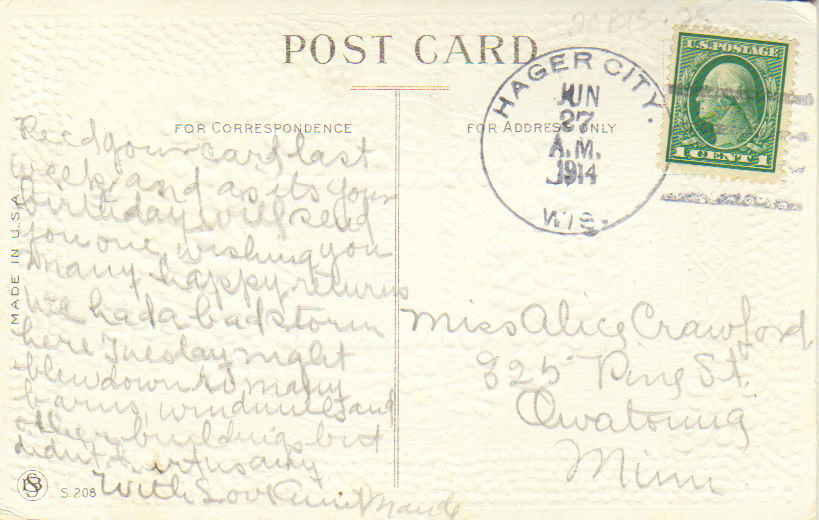 POST CARD
HAGER CITY.
JUN
27
A.M.
1914
WIS.
U.S. POSTAGE
1 CENT 1
FOR CORRESPONDENCE
FOR ADDRESS ONLY
Rec'd your card last
week and as its your
birthday will send
you one, wishing you
many happy returns
We had a bad storm
here Tuesday night
blew down so many
barns, windmills and
other buildings but
didnt hurt us any
With Love Aunt Maude
Miss Alice Crawford,
325 Pine St.
Owatonna
Minn.
MADE IN U.S.A.
S. 208